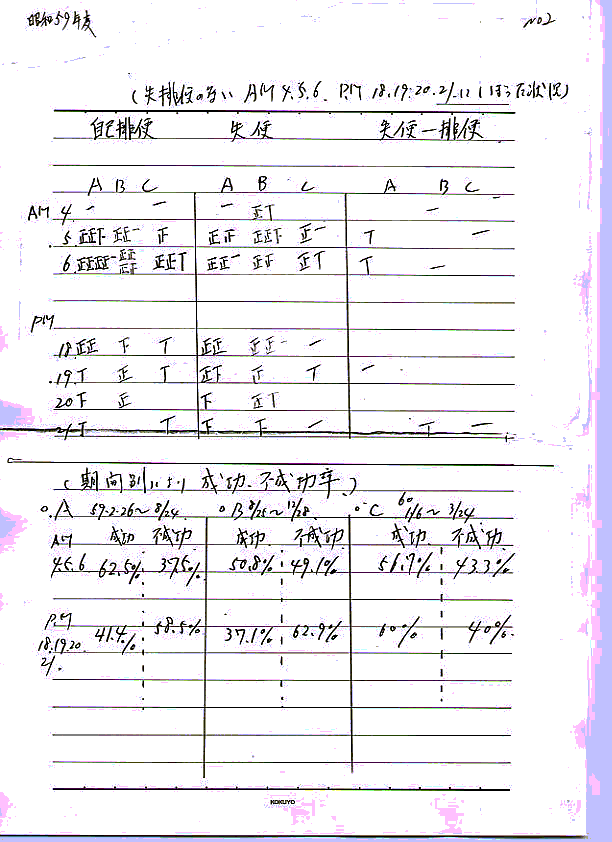 昭和59年度 NO2
(失排便の多い AM 4.5.6. P.M 18.19.20.21.にしぼった状況)
自己排便 失便 失便一排便
A B C A B C A B C
AM 4. 一 一 一 正T 一
5 正正下 正正一 正 正正 正正下 正一 T 一
6. 正正正一 正正正下 正正T 正正一 正正 正T T 一
PM
18 正正 下 T 正正 正正一 一
19. T 正 T 正下 正 T 一
20 下 正 下 正T
21 T T 下 下 一 T 一
(期間別による 成功、不成功率)
○.A 59.2.26~8/24 ○B 8/25~12/28 ○C 60 1/6~3/24
AM 成功 不成功 成功 不成功 成功 不成功
4.5.6 62.5% 37.5% 50.8% 49.1% 56.7% 43.3%
P.M 41.4% 58.5% 37.1% 62.9% 60% 40%
18.19.20.
21.
KOKUYO